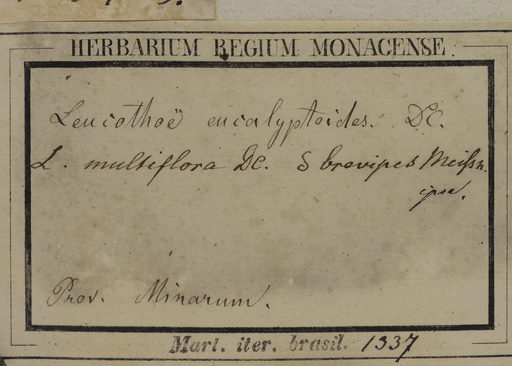 HERBARIUM REGIUM MONACENSE.
Leucothoë eucalyptoides. DC.
L. multiflora DC. δ brevipes Meissn.
ipse.
Prov. Minarum.
Mart. iter. brasil. 1337